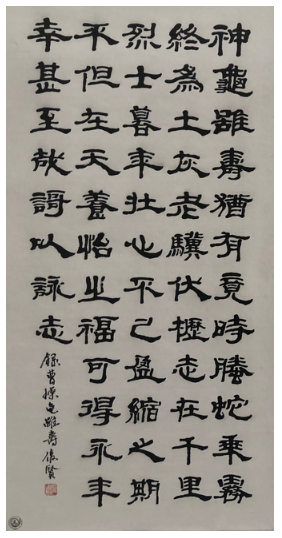 神龜雖壽猶有竟時騰蛇乘霧
終為土灰老驥伏櫪志在千里
烈士暮年壯心不已盈縮之期
不但在天養怡之福可得永年
幸甚至哉謌以詠志
錄曹操龟雖壽俊賢